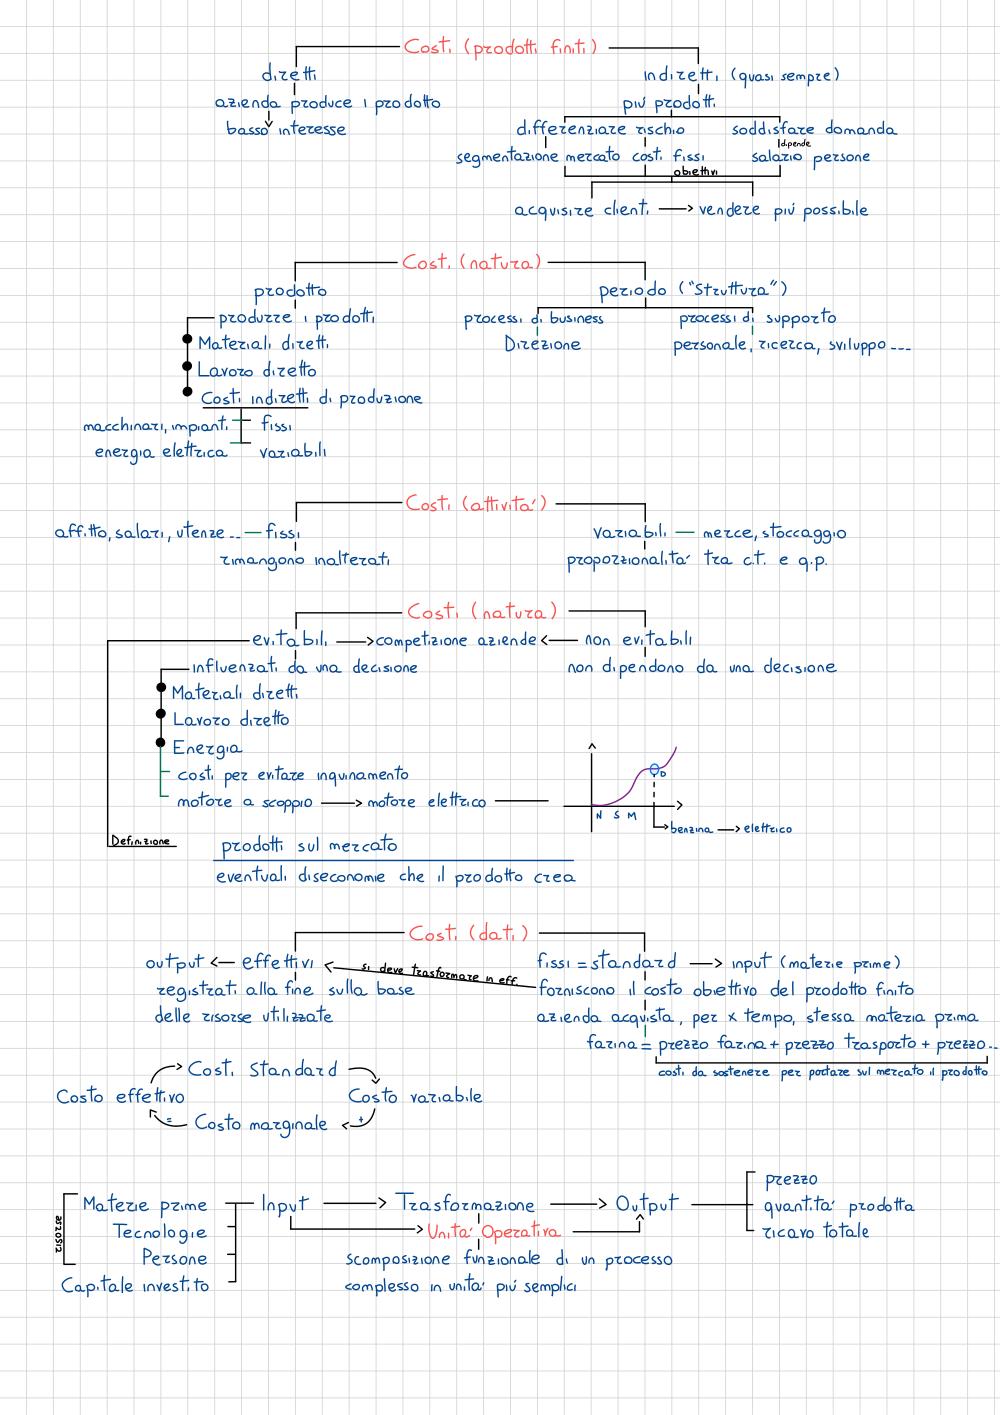 Costi (prodotti finiti)
diretti
indiretti (quasi sempre)
azienda produce 1 prodotto
più prodotti
basso interesse
differenziare rischio
soddisfare domanda
dipende
segmentazione mercato
costi fissi
salario persone
obiettivi
acquisire clienti
vendere più possibile
Costi (natura)
prodotto
periodo ("Struttura")
produrre i prodotti
processi di business
processi di supporto
Materiali diretti
Direzione
personale, ricerca, sviluppo ---
Lavoro diretto
Costi indiretti di produzione
macchinari, impianti
fissi
energia elettrica
variabili
Costi (attività)
affitto, salari, utenze .. — fissi
variabili — merce, stoccaggio
rimangono inalterati
proporzionalità tra c.t. e q.p.
Costi (natura)
evitabili → competizione aziende ← non evitabili
influenzati da una decisione
non dipendono da una decisione
Materiali diretti
Lavoro diretto
Energia
costi per evitare inquinamento
D
motore a scoppio → motore elettrico
N S M
benzina → elettrico
Definizione
prodotti sul mercato
eventuali diseconomie che il prodotto crea
Costi (dati)
output ← effettivi
si deve trasformare in eff.
fissi = standard → input (materie prime)
registrati alla fine sulla base
forniscono il costo obiettivo del prodotto finito
delle risorse utilizzate
azienda acquista, per x tempo, stessa materia prima
farina = prezzo farina + prezzo trasporto + prezzo..
costi da sostenere per portare sul mercato il prodotto
Costi Standard
Costo effettivo
Costo variabile
=
+
Costo marginale
prezzo
Materie prime
Input → Trasformazione → Output
quantità prodotta
risorse
Tecnologie
Unità Operativa
ricavo totale
Persone
scomposizione funzionale di un processo
Capitale investito
complesso in unità più semplici